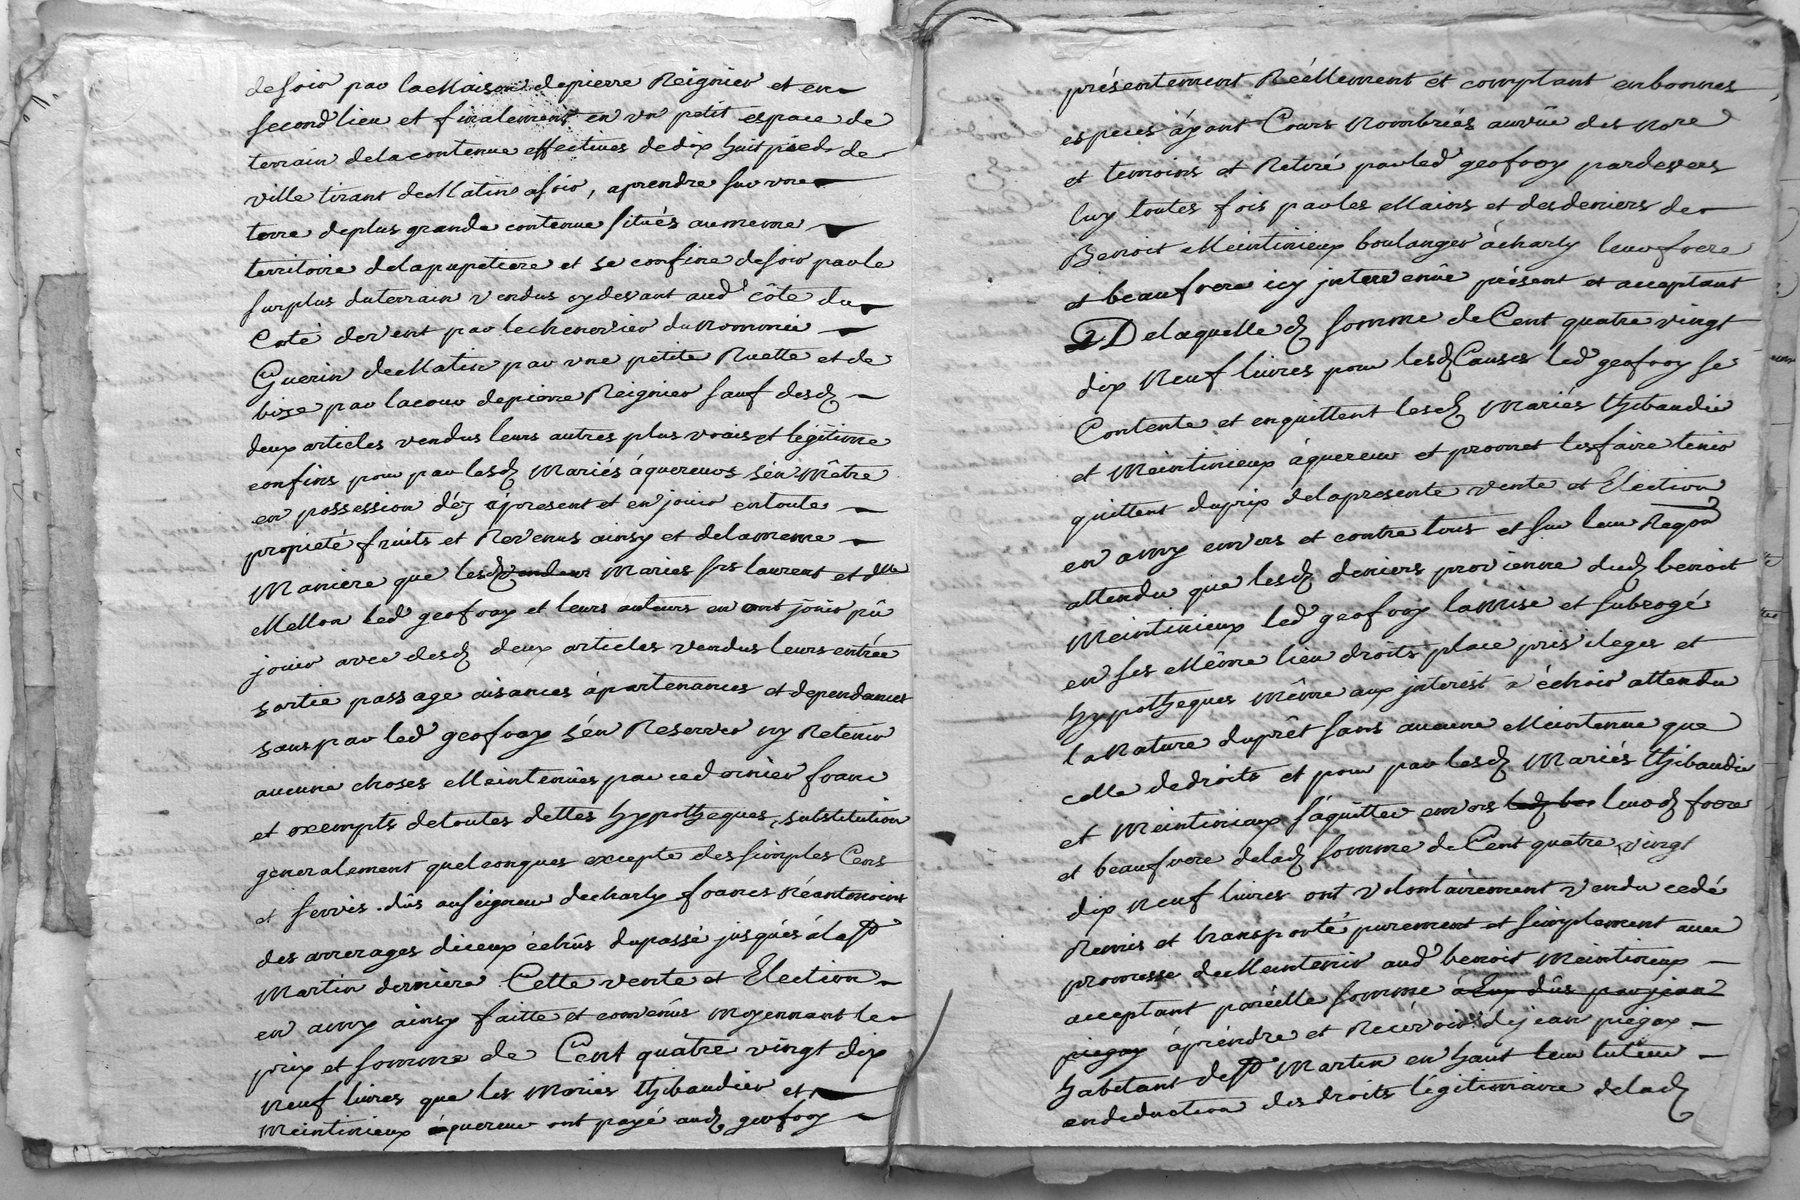 de soir par la Maison de pierre Reignier et en
second lieu et finalement en un petit espace de
terrain de la contenue effectives de dix huit pieds de
ville tirant de Matin a soir, aprendre sur une
terre de plus grande contenue situés au meme
territoire de la pupetiere et se confine de soir par le
surplus du terrain vendus cy devant aud côte du
Coté de vent par le chenevier du nommé
Guerin de Matin par une petite Ruette et de
bize par la cour de pierre Reignier sauf desd
deux articles vendus leurs autres plus vrais et légitime
confins pour par lesd Mariés áquereurs s'én Mêtre
en possession déz àpresent et en jouir en toute
propieté fruits et Revenus ainsy et de la meme
Maniere que lesd vendeurs Maries srs laurent et dlle
Mellon led geofroy et leurs auteurs en ont jouir pû
jouir avec desd deux articles vendus leurs entrée
sortie passage aisances ápartenances et dependances
sans par led geofroy s'én Reserver ny Retenir
aucune choses Meintenües par ce dernier franc
et exempts de toutes dettes hypotheques, substitution
generalement quelconques excepte des simples Cens
et servis dûs au seigneur de charly francs Néantmoins
des arrerages diceux échûs du passé jusqués á la St
Martin derniere Cette vente et Election
en amy ainsy faitte et convenüs moyennant le
prix et somme de Cent quatre vingt dix
neuf livres que les Mariés thibaudier et
Meintinieux áquereur ont payé aud geofroy
présentement Réellement et comptant en bonnes
especes áyant Cours Nombrées au vüe des Nore
et temoins et Retiré par led geofroy pardevers
luy toutes fois par les Mains et des deniers de
Benoit Meintinieux boulanger ácharly leur frere
et beaufrere icy intervenüe présent et acceptant
De laquelle d somme de Cent quatre vingt
dix Neuf livres pour lesd Causes led geofroy se
Contente et en quittent lesd Mariés thibaudie
et Meintinieux áquereur et promet les faire tenir
quittent du prix de la presente vente et Election
en amy envers et contre tous et sur leur Reqon
attendu que lesd deniers provienne dud benoit
Meintinieux led geofroy la Mise et subrogé
en ses Même lieu droits place privileges et
hypotheques Même aux interest à échoir attendu
la Nature du prêt sans aucune Meintenue que
celle de droits et pour par lesd Mariés thibaudie
et Meintinieux s'áquitter envers leurd frere
et beaufrere de lad somme de Cent quatre vingt
dix neuf livres ont volontairement vendu cedé
Remis et transporté purement et simplement avec
promesse de Meintenir aud benoit Meintinieux
acceptant paréille somme á luy dûs par jean
piegay ápréndre et Récévoir de jean piegay
habitant de St Martin en haut leur tuteur
en deduction des droits légitimaire de lad